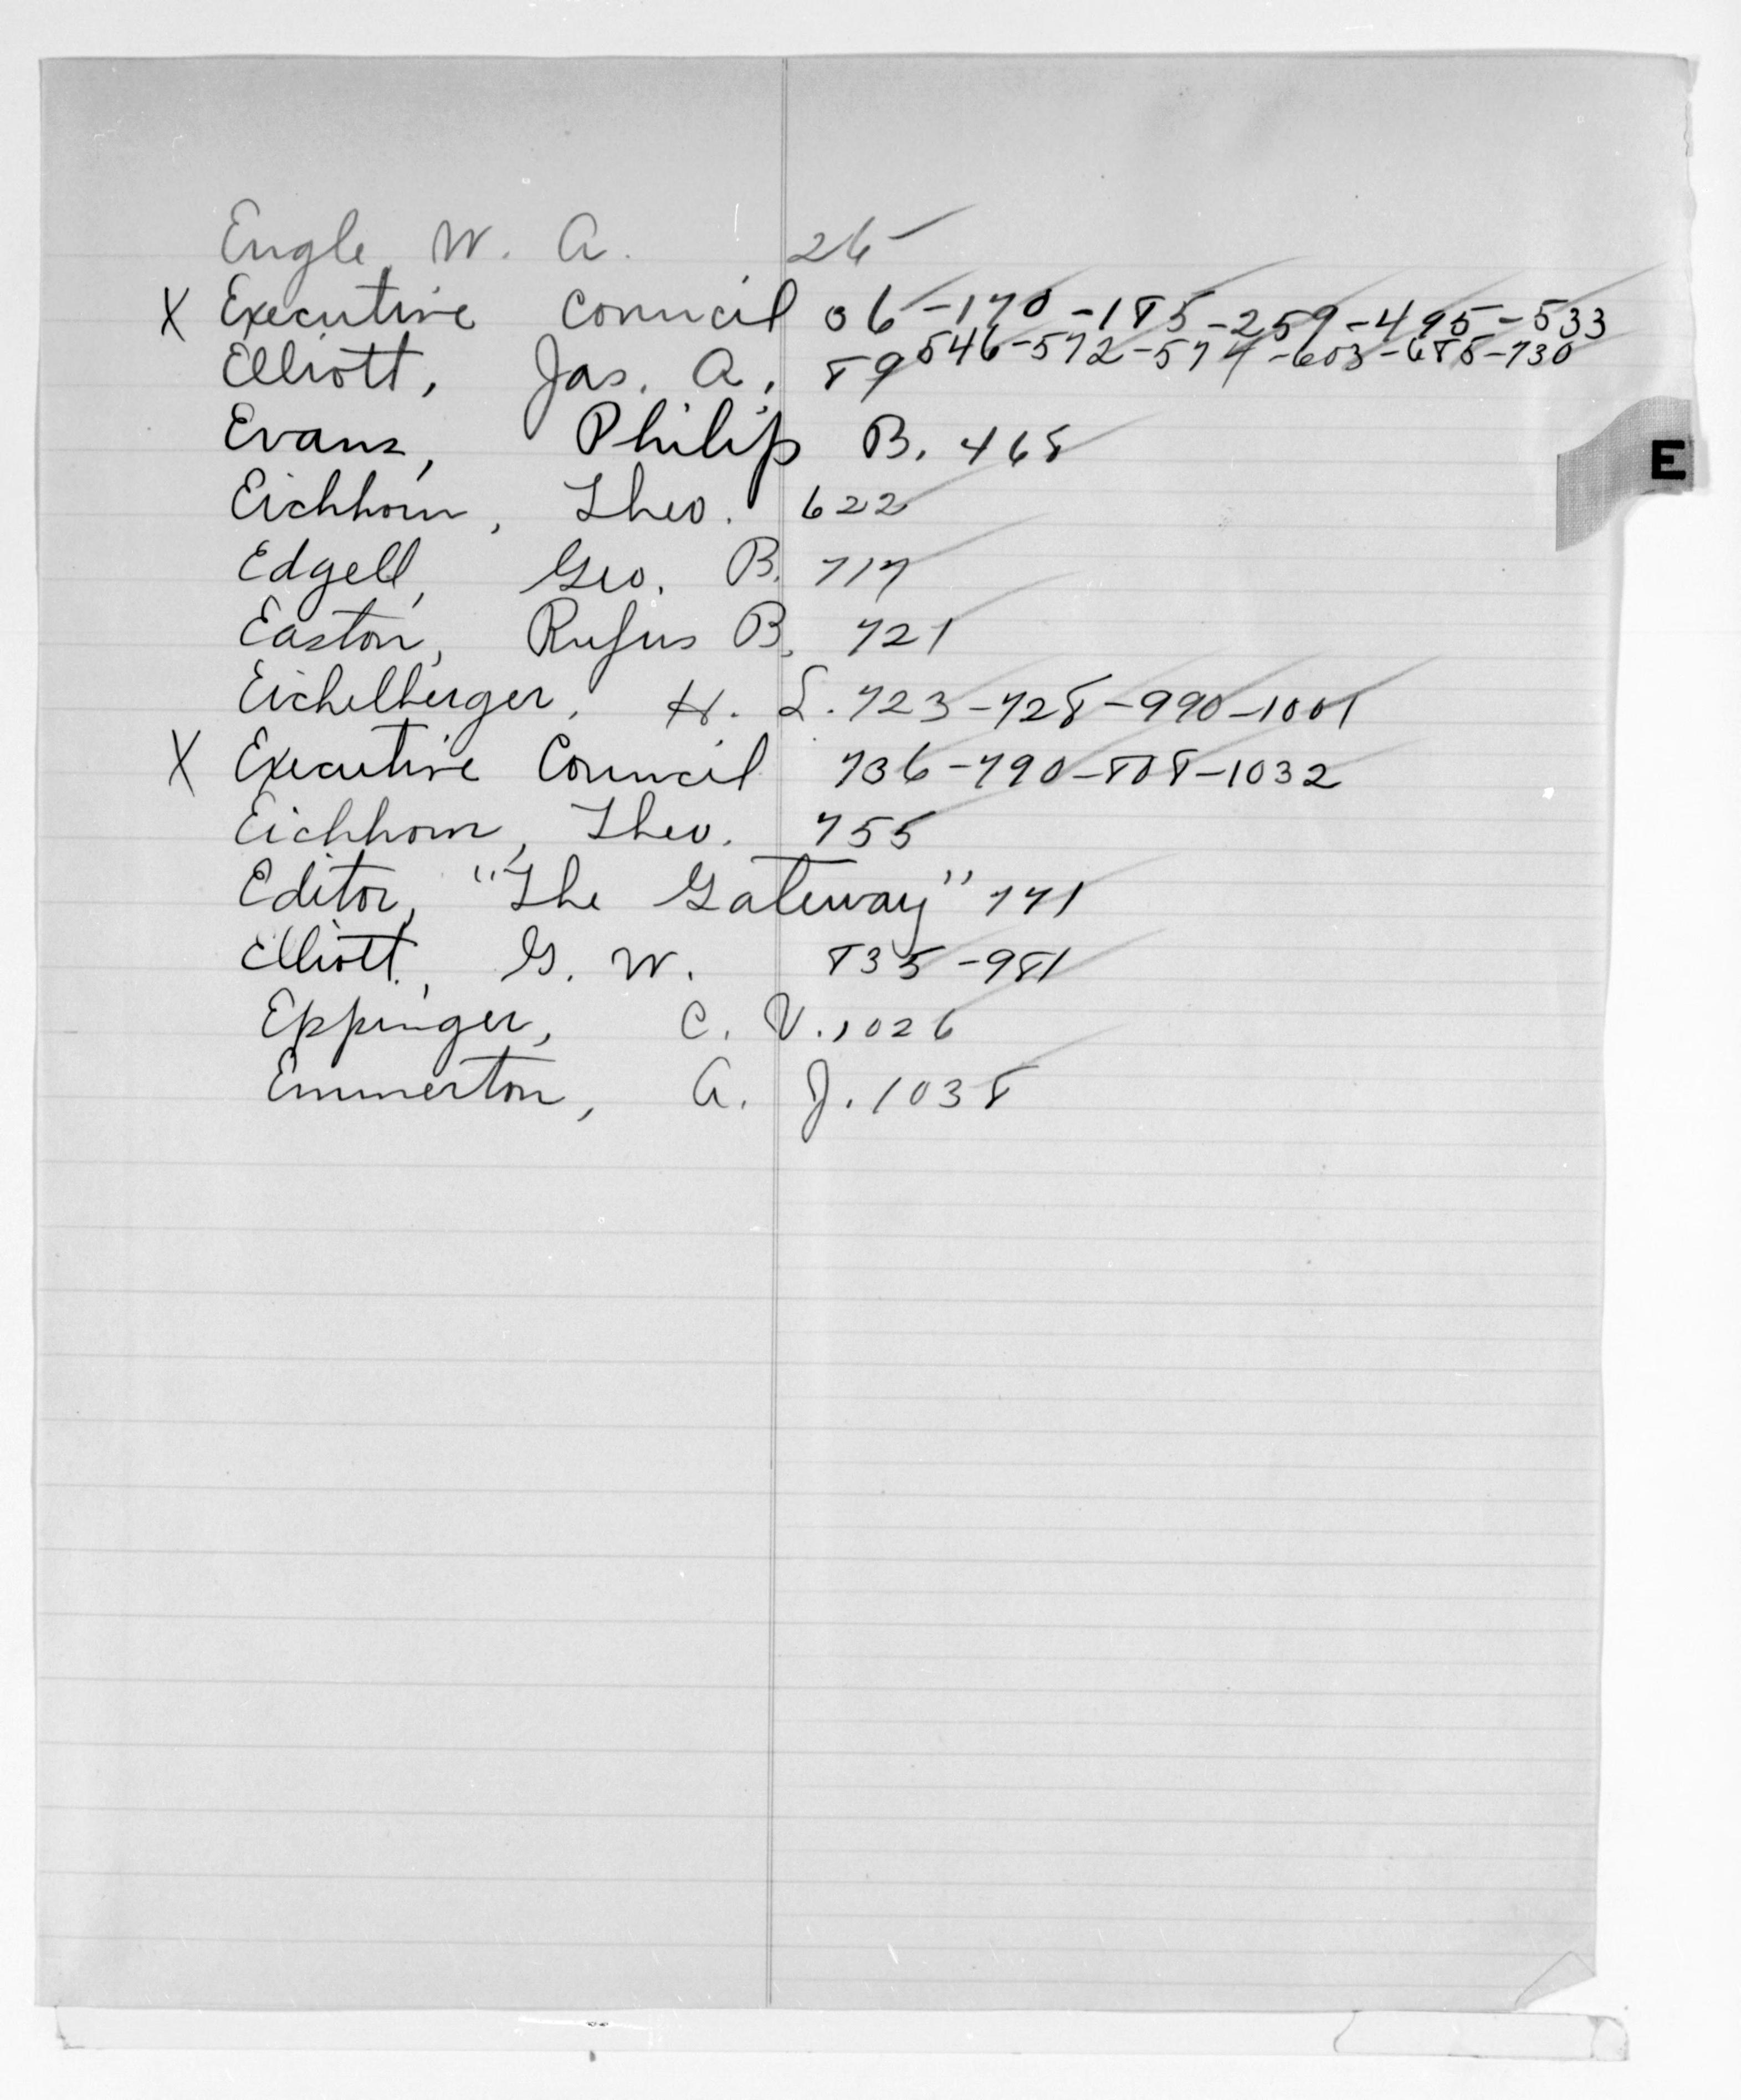 Engle, W. A. 26
X Executive Council 06-170-185-259-495-533
546-572-574-603-685-730
Elliott, Jas. A. 89
Evans, Philip B. 468
Eichhorn, Theo. 622
Edgell, Geo. B. 717
Easton, Rufus B. 721
Eichelberger, H. L. 723-728-990-1001
X Executive Council 736-790-808-1032
Eichhorn, Theo. 755
Editor, "The Gateway" 771
Elliott, G. W. 835-981
Eppinger, C. V. 1026
Emmerton, A. J. 1038
E